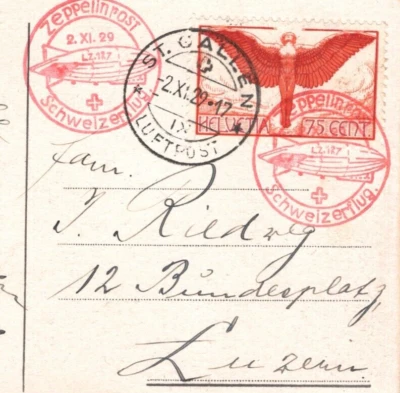 Zeppelinpost
2. XI. 29
LZ 127
Schweizerflug
ST. GALLEN
2
-2.XI.29-12
IX
LUFTPOST
HELVETIA 75 CENT.
Zeppelinpost
LZ 127
Schweizerflug
Fam.
J. Riedweg
12 Bundesplatz
Luzern.